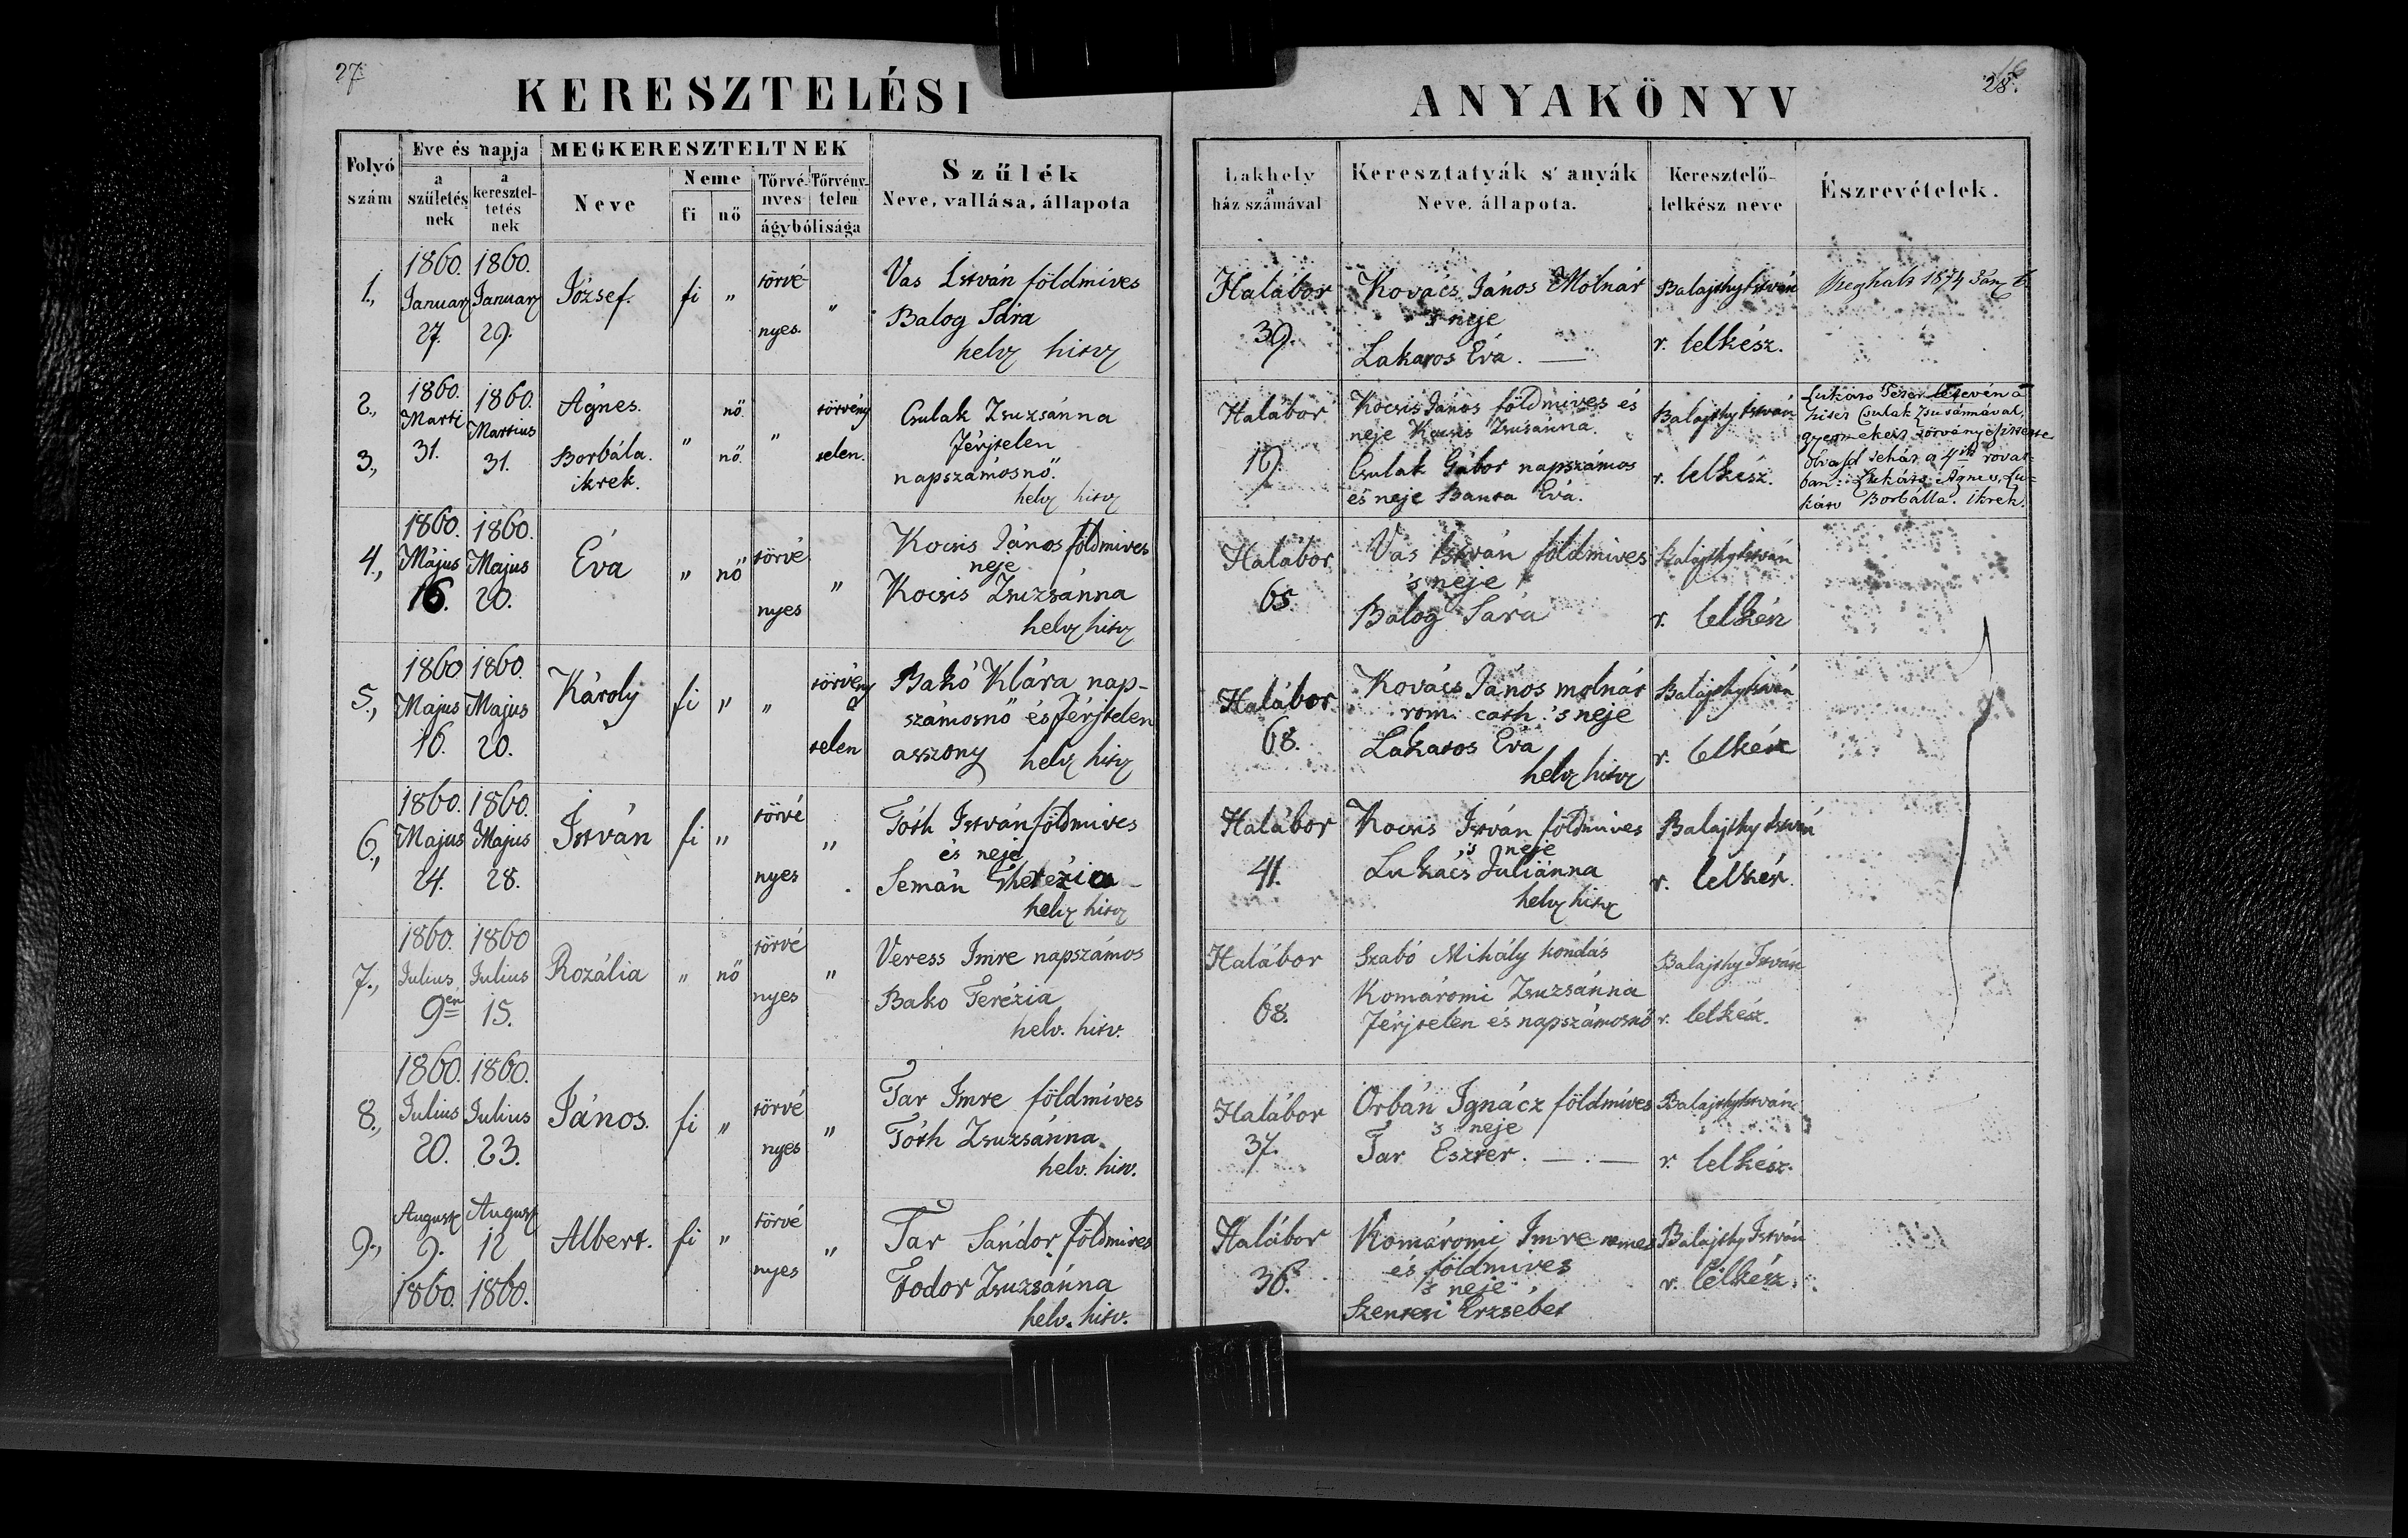 27
28.
KERESZTELÉSI
ANYAKÖNYV
Folyó szám
Eve és napja
a születésnek
a keresztel-
tetés
nek
MEGKERESZTELTNEK
Neve
Neme
fi
nő
Törvé-
nyes
Törvény-
telen
ágybólisága
Szűlék
Neve, vallása, állapota
Lakhely
a
ház számával
Keresztatyák s' anyák
Neve, állapota.
Keresztelő-
lelkész neve
Észrevételek.
1.,
1860.
Január
27.
1860.
Január
29.
József.
fi
"
törvé-
nyes.
"
Vas István földmíves
Balog Sára
helv hitv
Halábor
39.
Kovács János Molnár
's neje
Lakatos Éva. —
Balajthy István
r. lelkész.
Meghalt 1874 Jan 6.
2.,
3.,
1860.
Marti
31.
1860.
Martius
31.
Ágnes.
Borbála.
ikrek.
"
nő.
nő.
"
törvény
telen.
Csulak Zsuzsánna
férjtelen
napszámosnő.
helv hitv
Halábor
19.
Kocsis János földmíves és
neje Kocsis Zsusanna.
Csulak Gábor napszámos
és neje Banta Éva.
Balajthy István
r. lelkész.
hitet Csulak Zsusánnával,
gyermekeit törvényesítette
olvasd tehát a 4ik rovat-
ban: Lukáts Ágnes, Lu-
káts Borbálla. ikrek.
4.,
1860.
Május
16.
1860.
Majus
20.
Éva
"
nő
törvé
nyes
"
Kocsis János földmives
neje
Kocsis Zsuzsánna
helv hitv
Halábor
65.
Vas István földmives
's neje
Balog Sára
Balajthy István
r. lelkész
5.,
1860
Majus
16.
1860.
Majus
20.
Károly
fi
"
"
törvény
telen
Bakó Klára nap-
számosnő és férjtelen
asszony helv hitv
Halábor
68.
Kovács János molnár
rom. cath. 's neje
Lakatos Éva
helv hitv
Balajthy István
r. lelkész
6.,
1860.
Majus
24.
1860.
Majus
28.
István
fi
"
törvé
nyes
"
Tóth István földmives
és neje
Semán Therézia
helv hitv
Halábor
41.
Kocsis István földmives
's neje
Lukács Juliánna
helv hitv
Balajthy István
r. lelkész.
7.,
1860.
Julius
9en
1860
Julius
15.
Rozália
"
nő
törvé
nyes
"
Veress Imre napszámos
Bako Terézia
helv. hitv.
Halábor
68.
Szabó Mihály kondás
Komáromi Zsuzsánna
férjtelen és napszámosnő
Balajthy István
r. lelkész.
8.,
1860.
Julius
20.
1860.
Julius
23.
János.
fi
"
törvé
nyes
"
Tar Imre földmíves
Tóth Zsuzsánna
helv. hitv.
Halábor
37.
Orbán Ignácz földmíves
's neje
Tar Eszter. — . —
Balajthy István
r. lelkész.
9.,
August
9.
1860.
August
12
1860.
Albert.
fi
"
törvé
nyes
"
Tar Sándor földmives
Fodor Zsuzsánna
helv. hitv.
Halábor
36.
Komáromi Imre nemes
és földmives
's neje
Szentesi Erzsébet
Balajthy István
r. lelkész.